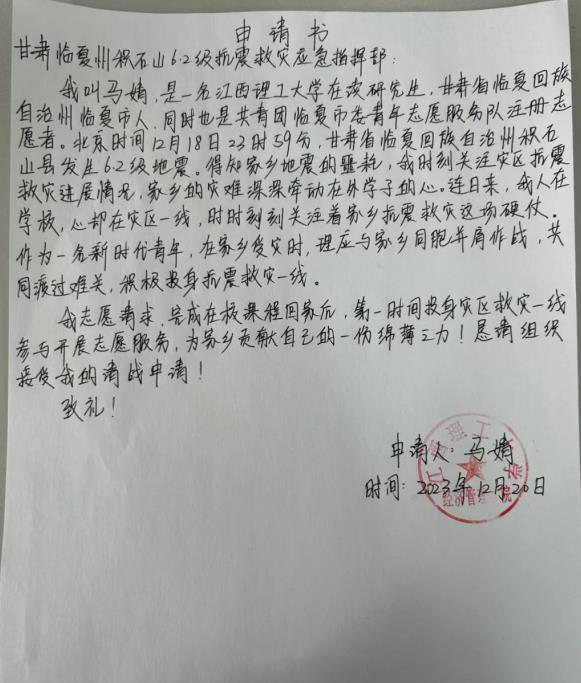 申请书
甘肃临夏州积石山6.2级抗震救灾应急指挥部：
我叫马婧，是一名江西理工大学在读研究生，甘肃省临夏回族
自治州临夏市人，同时也是共青团临夏市志青年志愿服务队注册志
愿者。北京时间12月18日23时59分，甘肃省临夏回族自治州积石
山县发生6.2级地震。得知家乡地震的噩耗，我时刻关注灾区抗震
救灾进展情况，家乡的灾难深深牵动在外学子的心。连日来，我人在
学校，心却在灾区一线，时时刻刻关注着家乡抗震救灾这场硬仗。
作为一名新时代青年，在家乡受灾时，理应与家乡同胞并肩作战，共
同渡过难关，积极投身抗震救灾一线。
我志愿请求，完成在校课程回家后，第一时间投身灾区救灾一线
参与开展志愿服务，为家乡贡献自己的一份绵薄之力！恳请组织
接受我的请战申请！
致礼！
申请人：马婧
时间：2023年12月20日
江西理工大学
经济管理学院